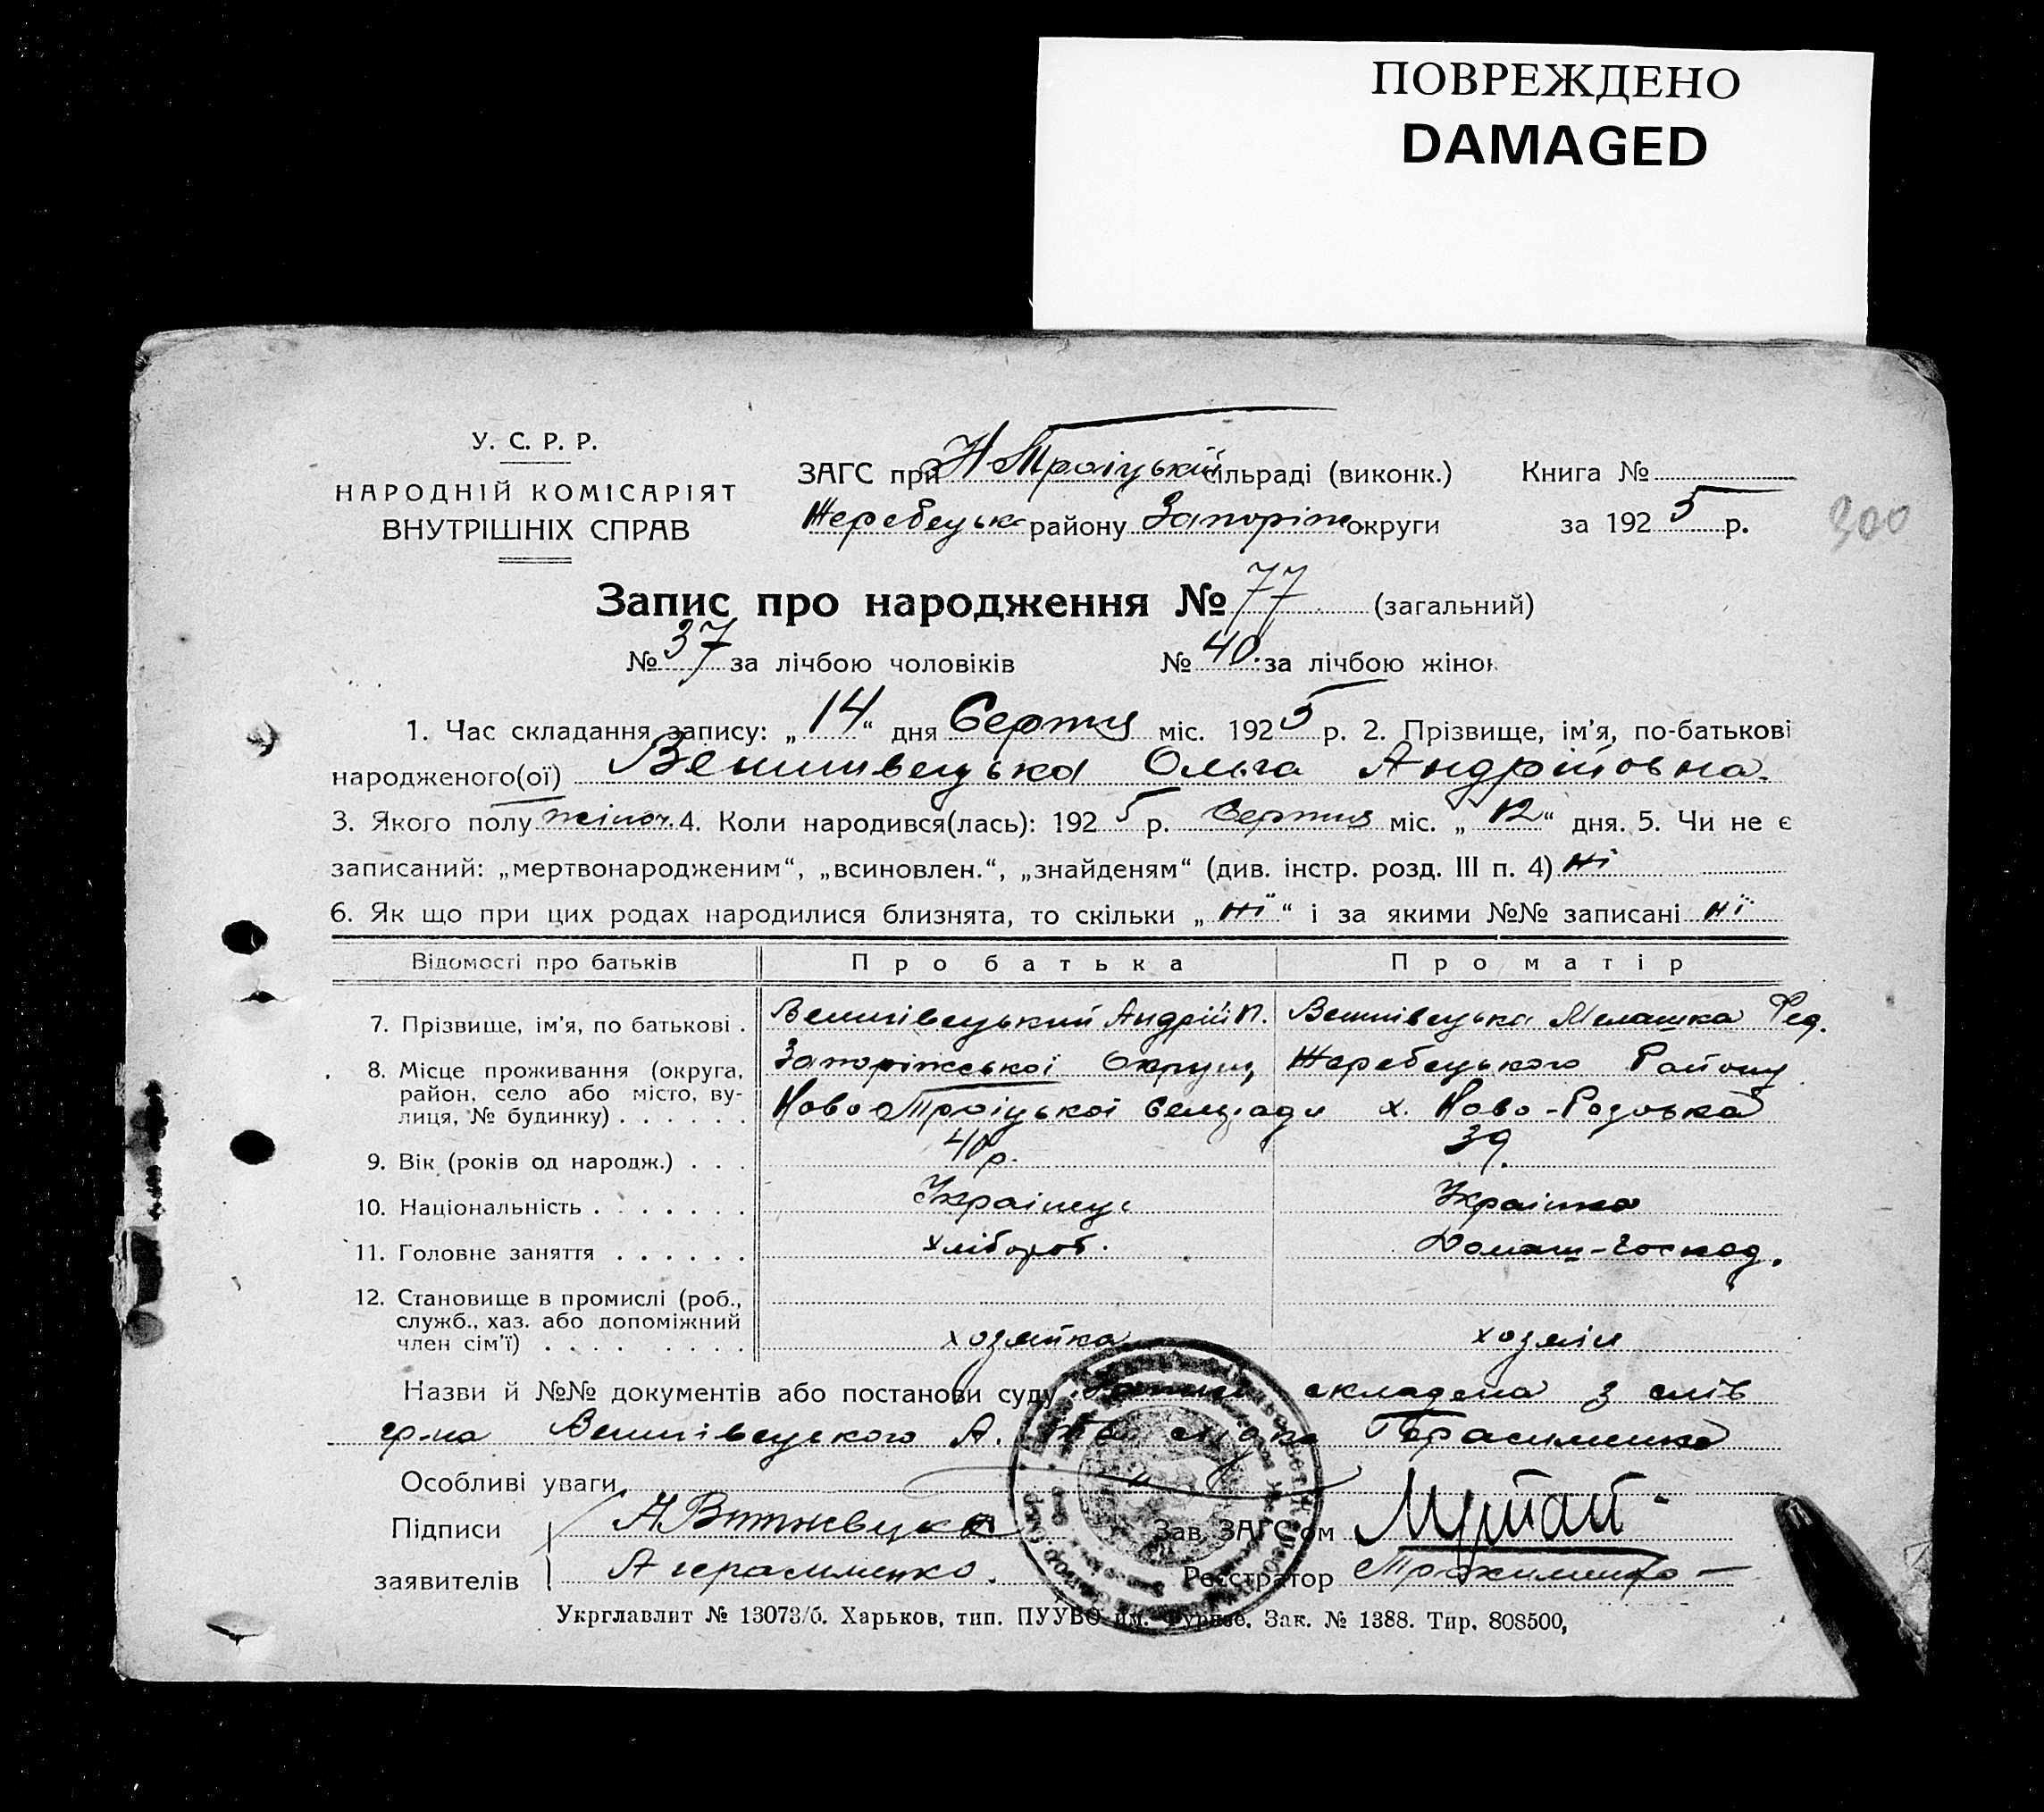 ПОВРЕЖДЕНО
DAMAGED
У. С. Р. Р.
НАРОДНІЙ КОМІСАРІЯТ
ВНУТРІШНІХ СПРАВ
ЗАГС при Н Троіцький сільраді (виконк.) Книга №
Жеребецьк району Запоріж. округи за 1925 р.
300
Запис про народження № 77 (загальний)
№ 37 за лічбою чоловіків № 40. за лічбою жінок
1. Час складання запису: „14“ дня Серпня міс. 1925 р. 2. Прізвище, ім’я, по-батькові
народженого(ої) Ольга Андрійовна.
3. Якого полу жіноч. 4. Коли народився(лась): 1925 р. Серпня міс. „12“ дня. 5. Чи не є
записаний: „мертвонародженим“, „всиновлен.“, „знайденям“ (див. інстр. розд. III п. 4) ні
6. Як що при цих родах народилися близнята, то скільки „ні“ і за якими №№ записані ні
Відомості про батьків Про батька Про матір
7. Прізвище, ім’я, по батькові . Андрій П. Мелашка Фед.
8. Місце проживання (округа, Запоріжської Округи, Жеребецького Району
район, село або місто, ву-
лиця, № будинку) . . . . . . Ново Троіцької Сельради х. Ново-
9. Вік (років од народж.) . . . 40 р. 39.
10. Національність . . . . . . . Украінець Украінка
11. Головне заняття . . . . . . хлібороб. Домаш-господ.
12. Становище в промислі (роб.,
служб., хаз. або допоміжний
член сім’ї) . . . . . . . . хозяйка хозяін
Назви й №№ документів або постанови суду складена з слів
гр-на А. Герасименка
Особливі уваги
Підписи Зав. ЗАГС’ом
заявителів А Герасименко. Реєстратор
Укрглавлит № 13073/б. Харьков, тип. ПУУВО им. Фрунзе. Зак. № 1388. Тир. 808500,